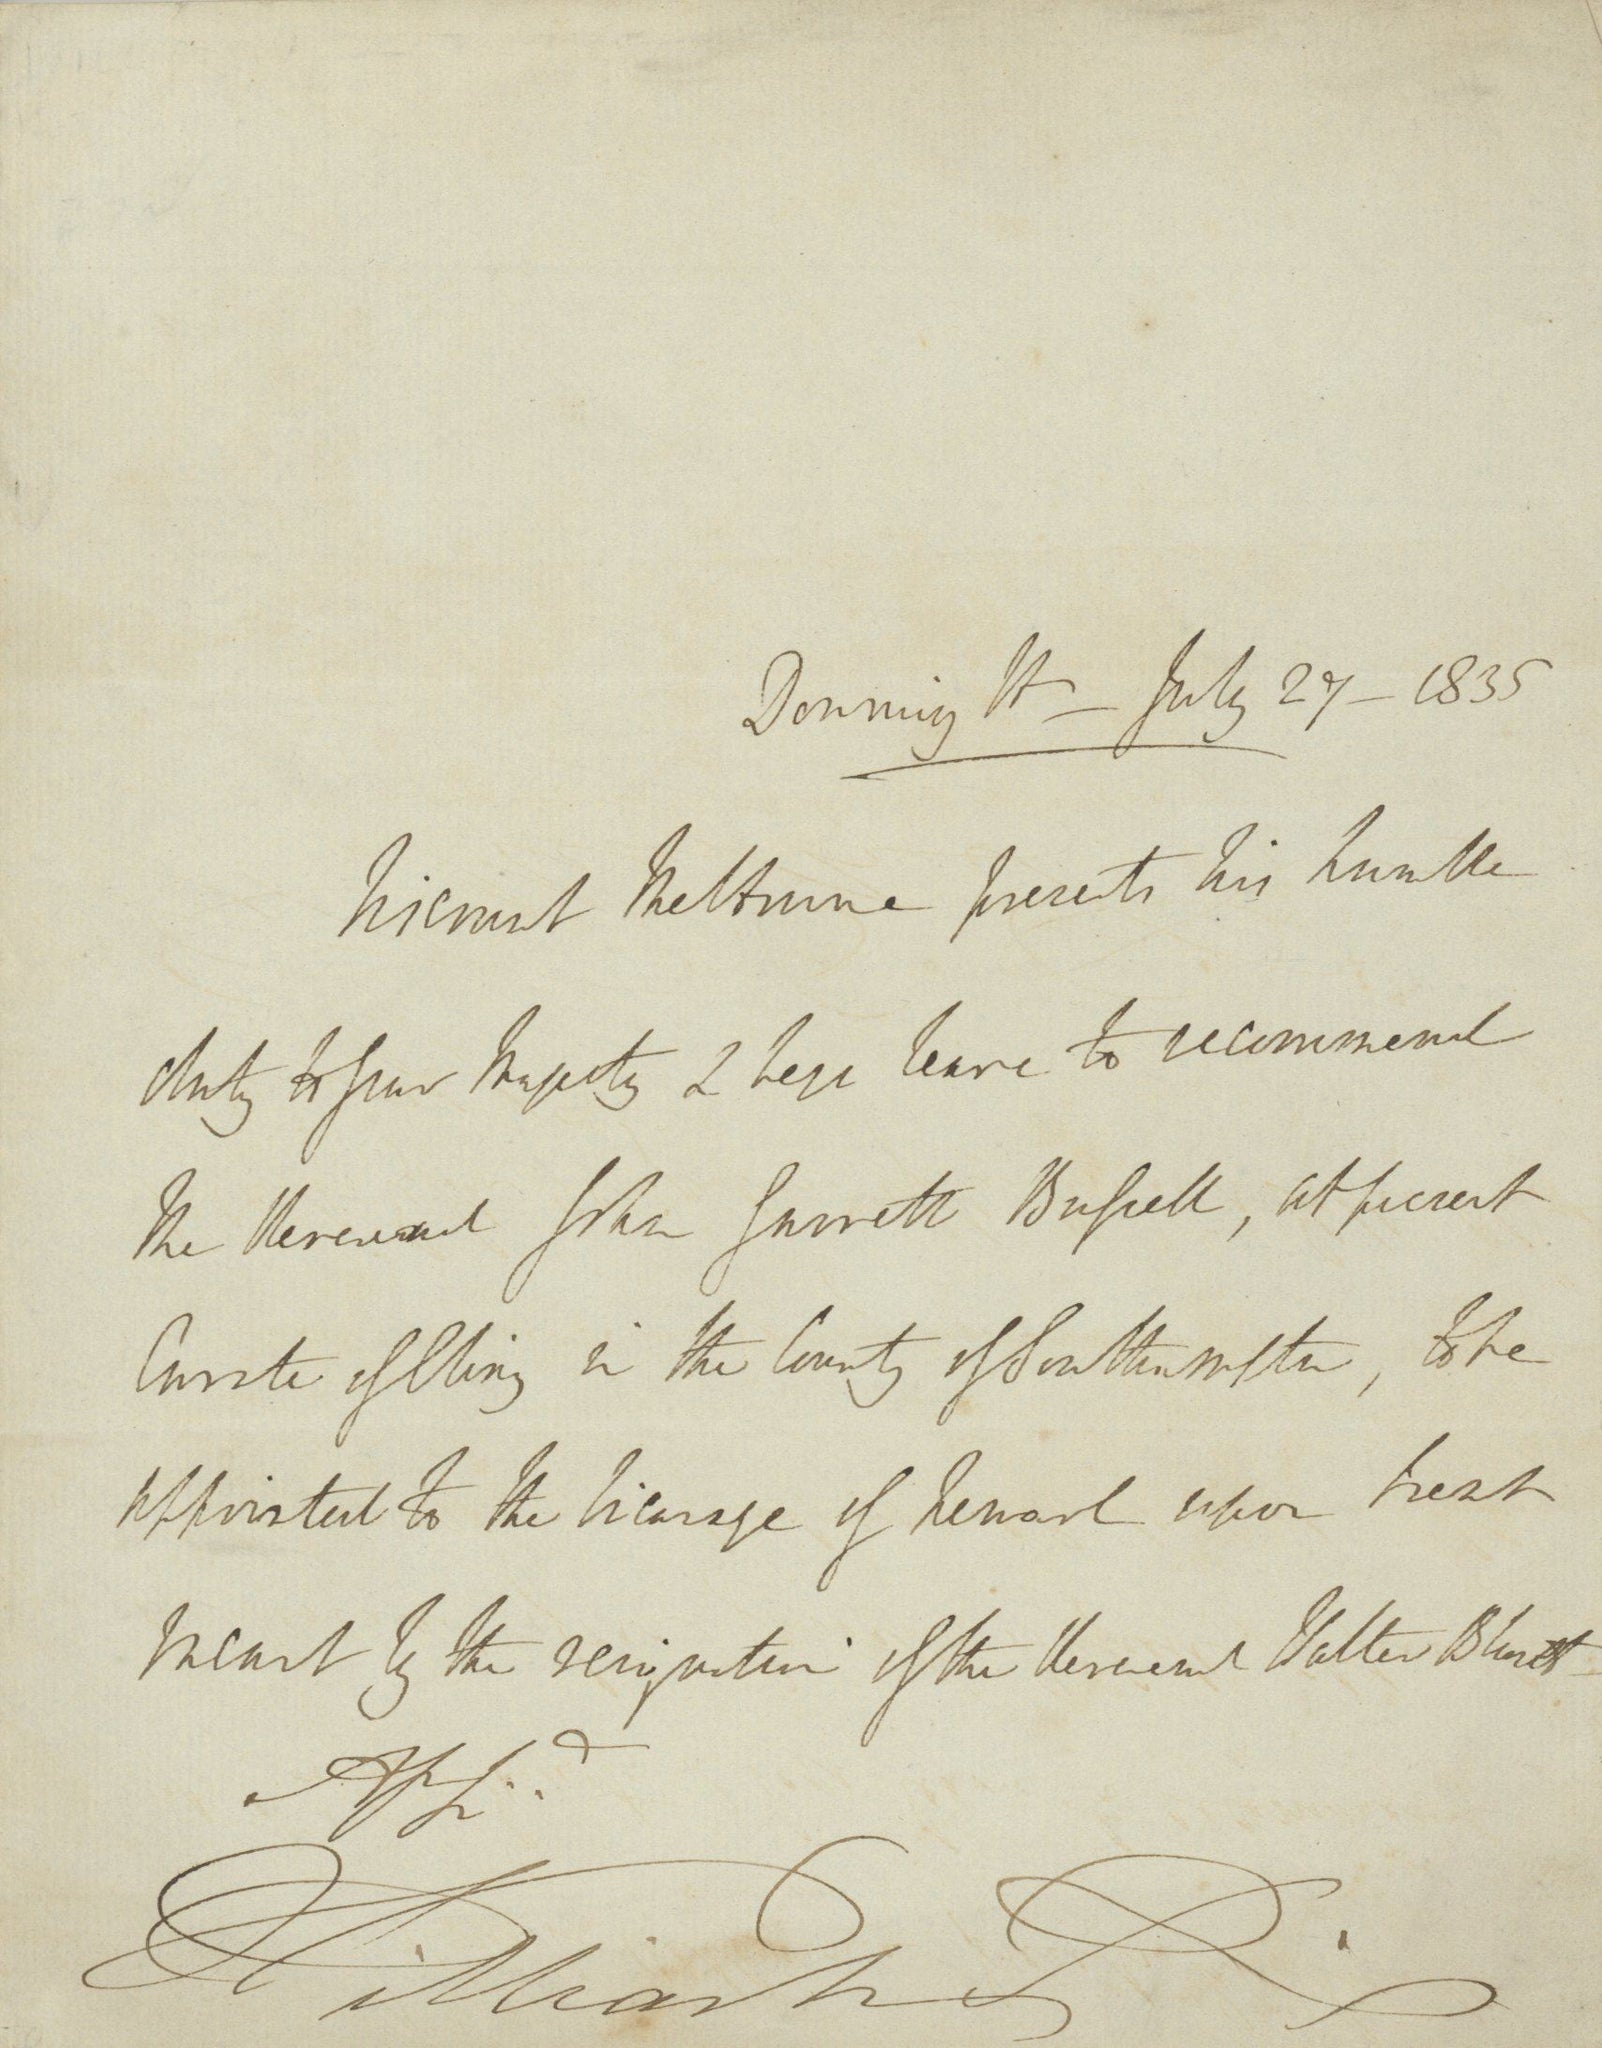 Downing St – July 27 – 1835
Viscount Melbourne presents his humble
duty to your Majesty & begs leave to recommend
the Reverend John Garrett Bussell, at present
Curate of Eling in the County of Southampton, to be
appointed to the Vicarage of Newark upon Trent
vacant by the resignation of the Reverend Walter Blunt
App.d
William R.